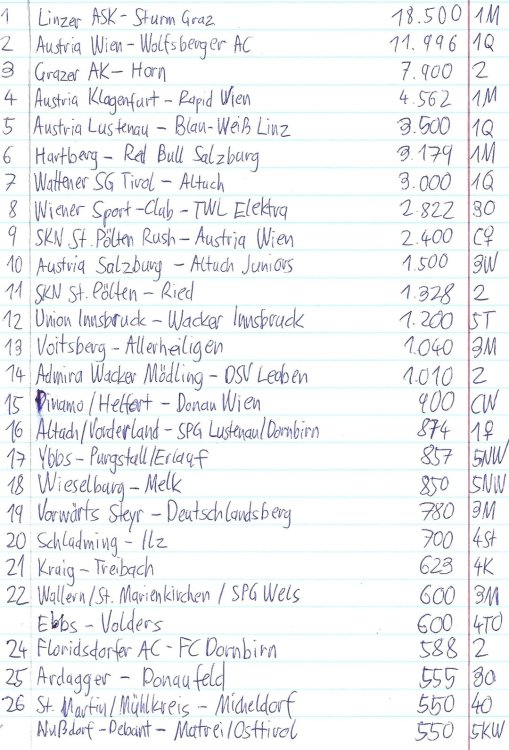 1 Linzer ASK - Sturm Graz 18.500 1M
2 Austria Wien - Wolfsberger AC 11.996 1Q
3 Grazer AK - Horn 7.900 2
4 Austria Klagenfurt - Rapid Wien 4.562 1M
5 Austria Lustenau - Blau-Weiß Linz 3.500 1Q
6 Hartberg - Red Bull Salzburg 3.179 1M
7 Wattener SG Tirol - Altach 3.000 1Q
8 Wiener Sport-Club - TWL Elektra 2.822 3O
9 SKN St. Pölten Rush - Austria Wien 2.400 C♀
10 Austria Salzburg - Altach Juniors 1.500 3W
11 SKN St. Pölten - Ried 1.328 2
12 Union Innsbruck - Wacker Innsbruck 1.200 5T
13 Voitsberg - Allerheiligen 1.040 3M
14 Admira Wacker Mödling - DSV Leoben 1.010 2
15 Dinamo/Helfort - Donau Wien 900 CW
16 Altach/Vorderland - SPG Lustenau/Dornbirn 874 1♀
17 Ybbs - Purgstall/Erlauf 857 5NW
18 Wieselburg - Melk 850 5NW
19 Vorwärts Steyr - Deutschlandsberg 780 3M
20 Schladming - Ilz 700 4St
21 Kraig - Treibach 623 4K
22 Wallern/St. Marienkirchen / SPG Wels 600 3M
Ebbs - Volders 600 4TO
24 Floridsdorfer AC - FC Dornbirn 588 2
25 Ardagger - Donaufeld 555 3O
26 St. Martin/Mühlkreis - Micheldorf 550 4O
Nußdorf-Debant - Matrei/Osttirol 550 5KW